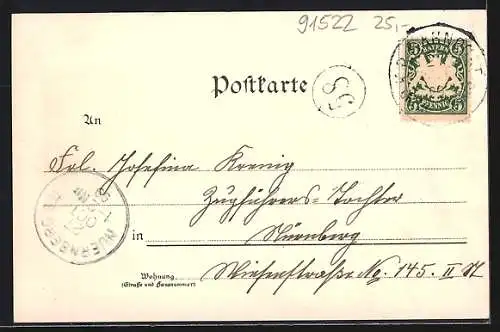 91522 25,-
BAYERN
5 5
PFENNIG
Postkarte
SC
An
Frl. Josefina Krenig
Zugführers-Tochter
in Nürnberg
Wiesenstraße No. 145. II
Wohnung
(Straße und Hausnummer)
NUERNBERG